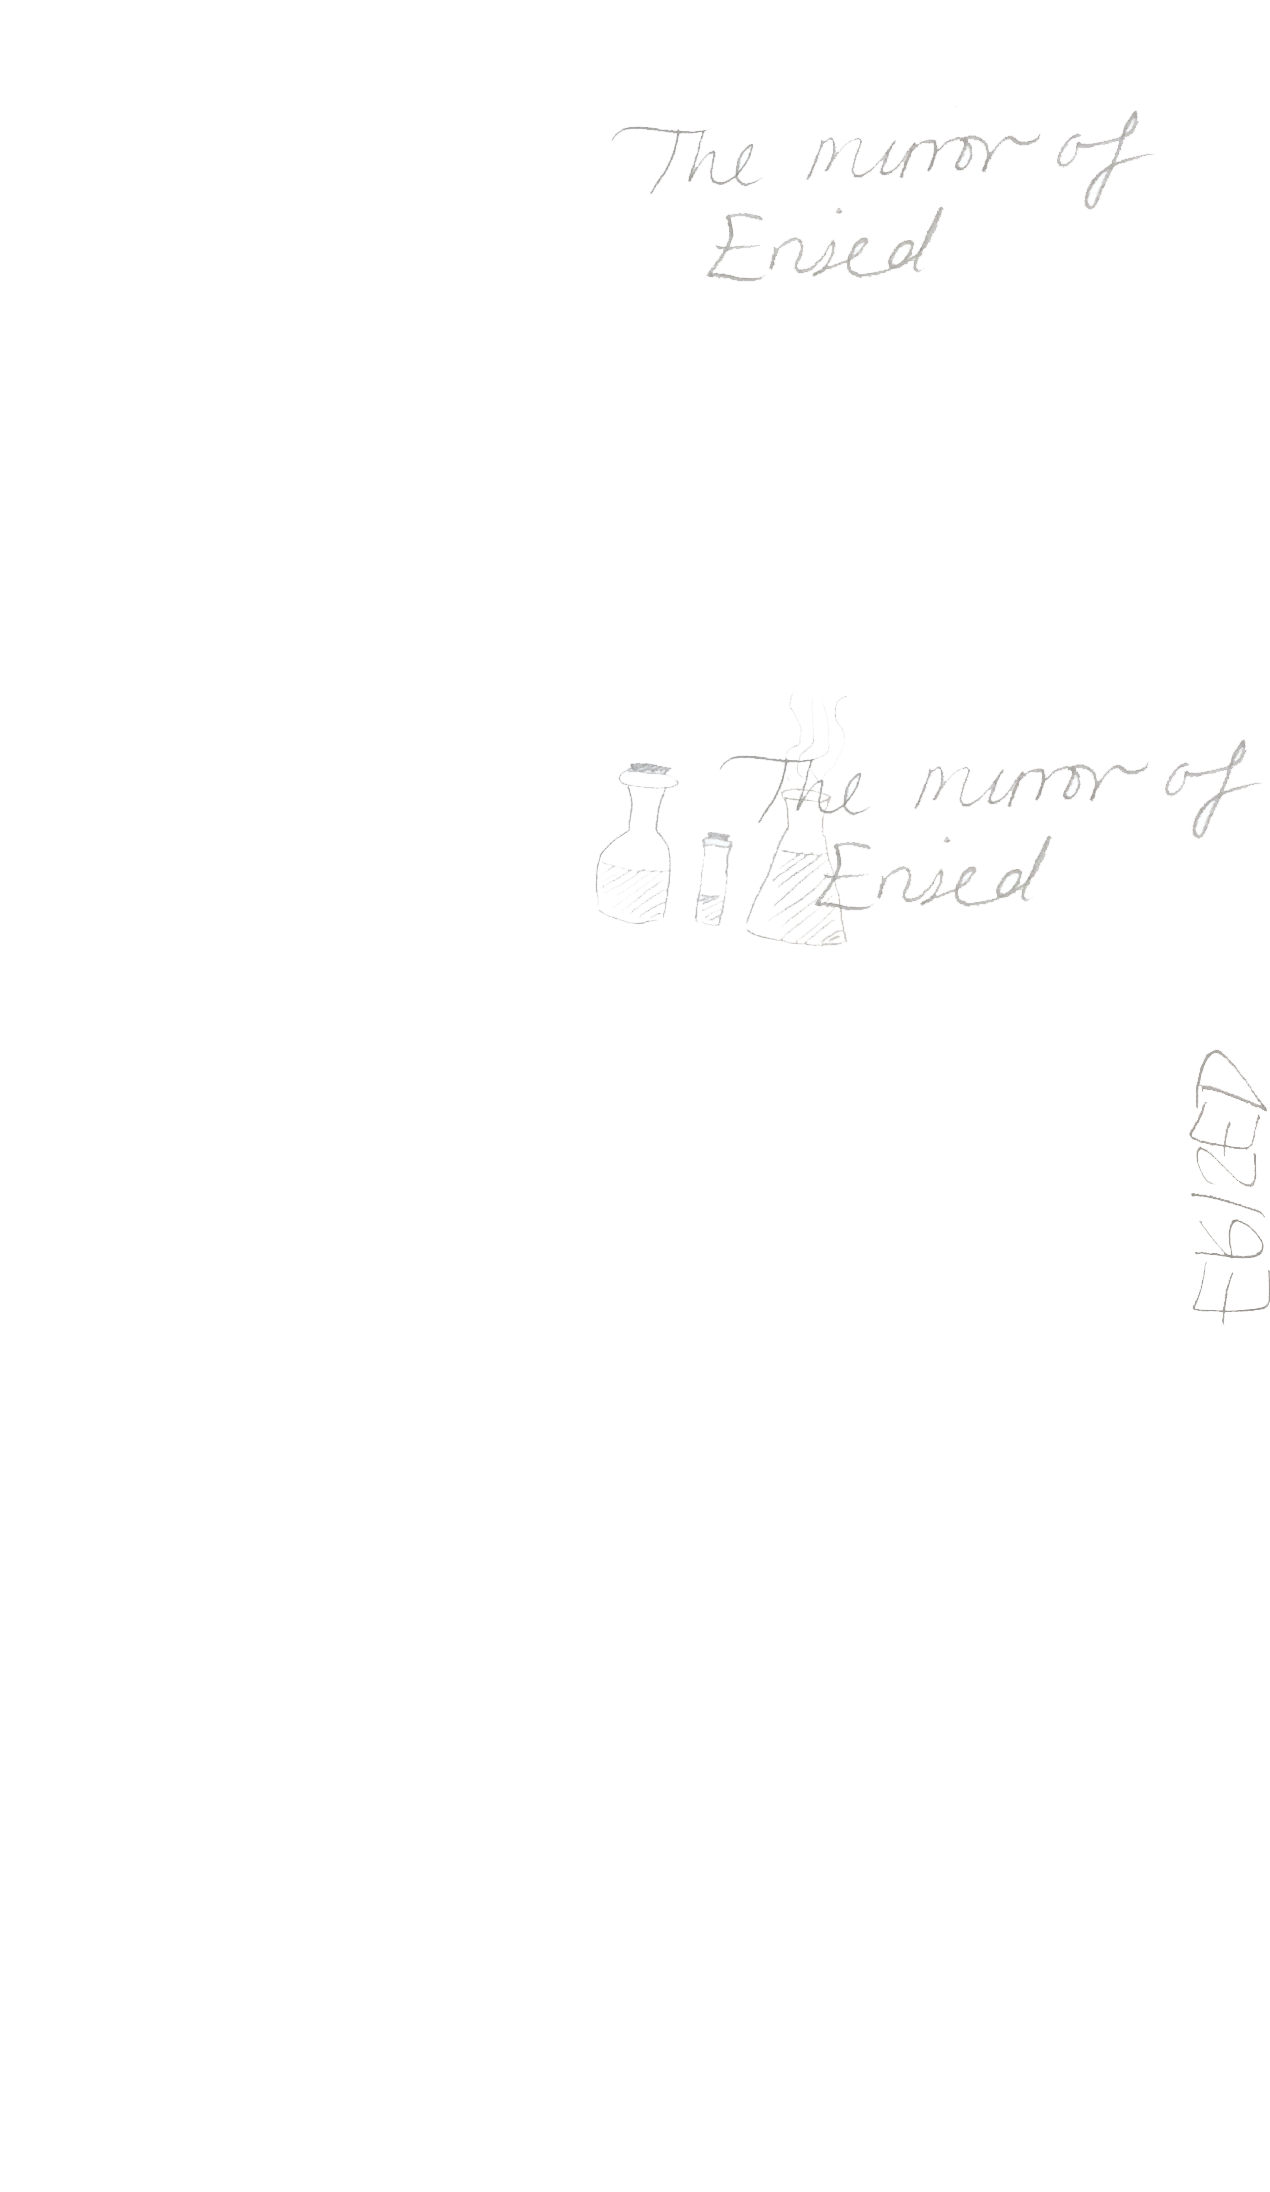 The mirror of
Erised
The mirror of
Erised
ERIZED